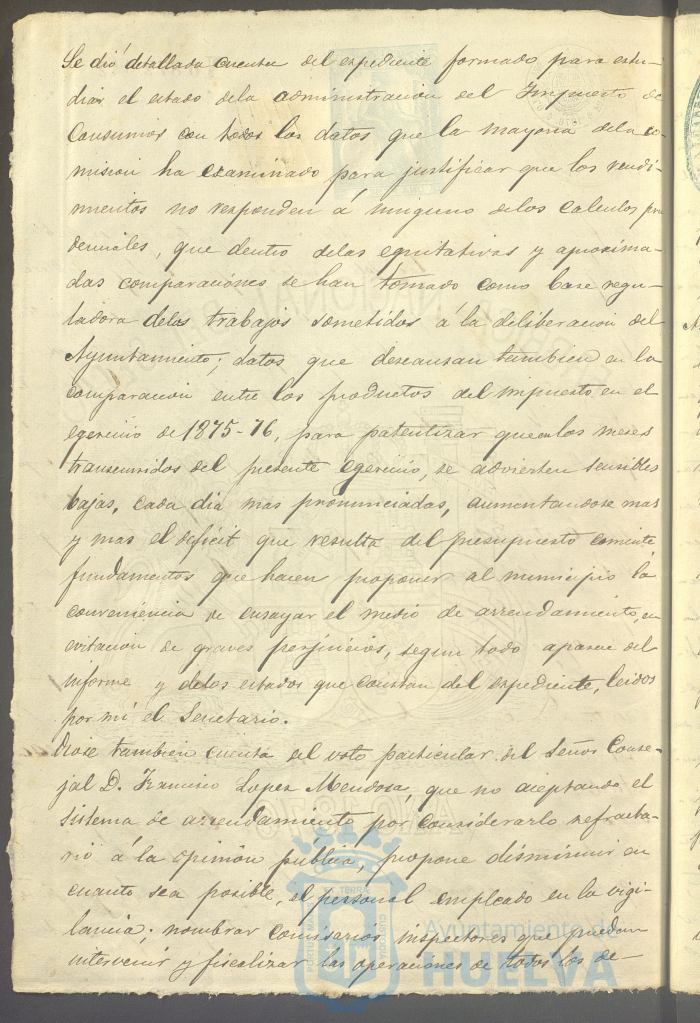 Se dió detallada cuenta del expediente formado para estu-
diar el estado dela administracion del Impuesto de
Consumos con todos los datos que la mayoria dela co-
mision ha examinado para justificar que los rendi-
mientos no responden á ninguno delos calculos pru
denciales, que dentro delas equitativas y aproxima-
das comparaciones se han tomado como base regu-
ladora delos trabajos sometidos á la deliberacion del
Ayuntamiento; datos que descansan tambien en la
comparacion entre los productos del impuesto en el
egercicio de 1875-76, para patentizar que en los meses
transcurridos del presente egercicio, se advierten sensibles
bajas, cada dia mas pronunciadas, aumentandose mas
y mas el deficit que resulta del presupuesto corriente
fundamentos que hacen proponer al municipio la
conveniencia de ensayar el medio de arrendamiento, en
evitacion de graves perjuicios, segun todo aparece del
informe y delos estados que constan del expediente, leidos
por mi el Secretario.
Diose tambien cuenta del voto particular del Señor Conce-
jal D. Francisco Lopez Mendosa, que no aceptando el
sistema de arrendamiento por considerarlo refracta-
rio á la opinion publica, propone disminuir en
cuanto sea posible, el personal empleado en la vigi-
lancia; nombrar comisarios inspectores que puedan
intervenir y fiscalizar las operaciones de todos los de-
Ayuntamiento de
HUELVA